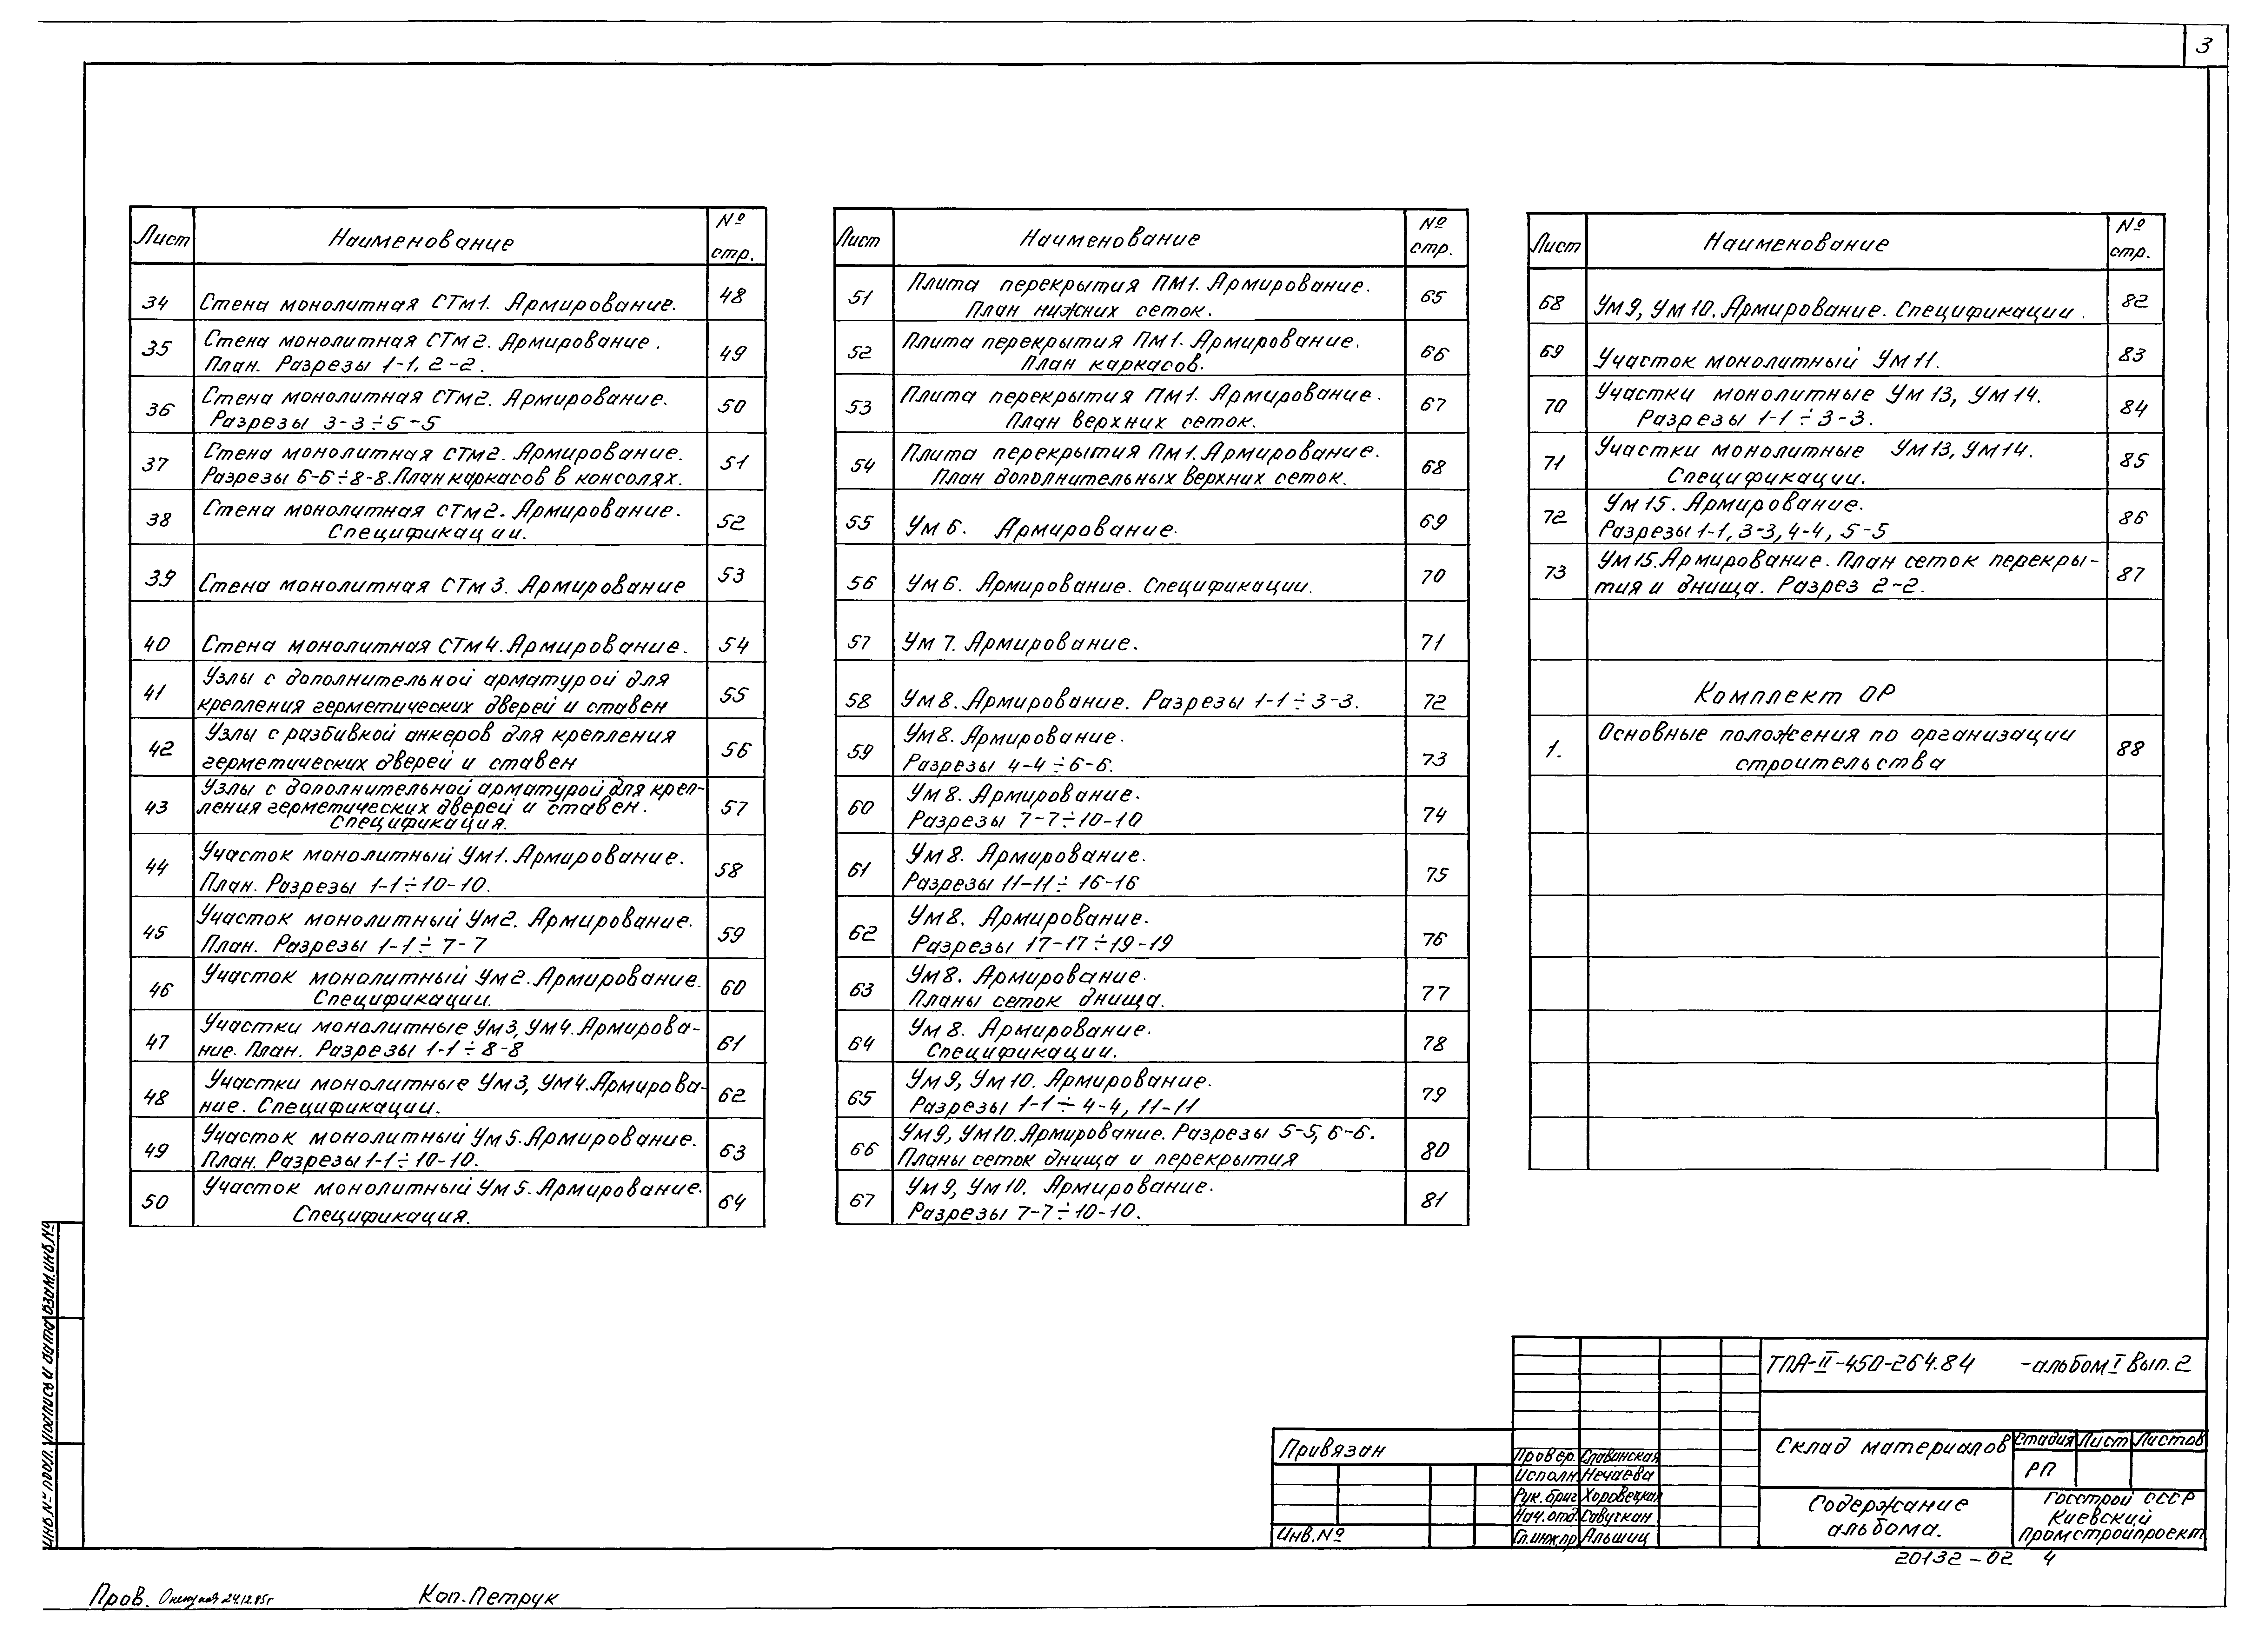 3
Лист Наименование № стр.
34 Стена монолитная СТм1. Армирование. 48
35 Стена монолитная СТм2. Армирование.
План. Разрезы 1-1, 2-2. 49
36 Стена монолитная СТм2. Армирование.
Разрезы 3-3÷5-5 50
37 Стена монолитная СТм2. Армирование.
Разрезы 6-6÷8-8. План каркасов в консолях. 51
38 Стена монолитная СТм2. Армирование.
Спецификации. 52
39 Стена монолитная СТм3. Армирование 53
40 Стена монолитная СТм4. Армирование. 54
41 Узлы с дополнительной арматурой для
крепления герметических дверей и ставен 55
42 Узлы с разбивкой анкеров для крепления
герметических дверей и ставен 56
43 Узлы с дополнительной арматурой для креп-
ления герметических дверей и ставен.
Спецификация. 57
44 Участок монолитный Ум1. Армирование.
План. Разрезы 1-1÷10-10. 58
45 Участок монолитный Ум2. Армирование.
План. Разрезы 1-1÷7-7 59
46 Участок монолитный Ум2. Армирование.
Спецификации. 60
47 Участки монолитные Ум3, Ум4. Армирова-
ние. План. Разрезы 1-1÷8-8 61
48 Участки монолитные Ум3, Ум4. Армирова-
ние. Спецификации. 62
49 Участок монолитный Ум5. Армирование.
План. Разрезы 1-1÷10-10. 63
50 Участок монолитный Ум5. Армирование.
Спецификация. 64
Лист Наименование № стр.
51 Плита перекрытия ПМ1. Армирование.
План нижних сеток. 65
52 Плита перекрытия Пм1. Армирование.
План каркасов. 66
53 Плита перекрытия Пм1. Армирование.
План верхних сеток. 67
54 Плита перекрытия Пм1. Армирование.
План дополнительных верхних сеток. 68
55 Ум 6. Армирование. 69
56 Ум 6. Армирование. Спецификации. 70
57 Ум 7. Армирование. 71
58 Ум 8. Армирование. Разрезы 1-1÷3-3. 72
59 Ум 8. Армирование.
Разрезы 4-4÷6-6. 73
60 Ум 8. Армирование.
Разрезы 7-7÷10-10 74
61 Ум 8. Армирование.
Разрезы 11-11÷16-16 75
62 Ум 8. Армирование.
Разрезы 17-17÷19-19 76
63 Ум 8. Армирование.
Планы сеток днища. 77
64 Ум 8. Армирование.
Спецификации. 78
65 Ум 9, Ум 10. Армирование.
Разрезы 1-1÷4-4, 11-11 79
66 Ум 9, Ум 10. Армирование. Разрезы 5-5, 6-6.
Планы сеток днища и перекрытия 80
67 Ум 9, Ум 10. Армирование.
Разрезы 7-7÷10-10. 81
Лист Наименование № стр.
68 Ум 9, Ум 10. Армирование. Спецификации. 82
69 Участок монолитный Ум 11. 83
70 Участки монолитные Ум 13, Ум 14.
Разрезы 1-1÷3-3. 84
71 Участки монолитные Ум 13, Ум 14.
Спецификации. 85
72 Ум 15. Армирование.
Разрезы 1-1, 3-3, 4-4, 5-5 86
73 Ум 15. Армирование. План сеток перекры-
тия и днища. Разрез 2-2. 87
Комплект ОР
1. Основные положения по организации
строительства 88
ТПА-II-450-264.84 -альбом I Вып. 2
Привязан
Инв. №
Провер. Славинская
Исполн. Нечаева
Рук. бриг. Хоровецкая
Нач. отд. Савускан
Гл. инж. пр. Альшиц
Склад материалов
Стадия Лист Листов
РП
Содержание
альбома.
Госстрой СССР
Киевский
Промстройпроект
20132-02 4
Инв. № подл. Подпись и дата Взам. инв. №
Пров. 24.12.85г
Коп. Петрук